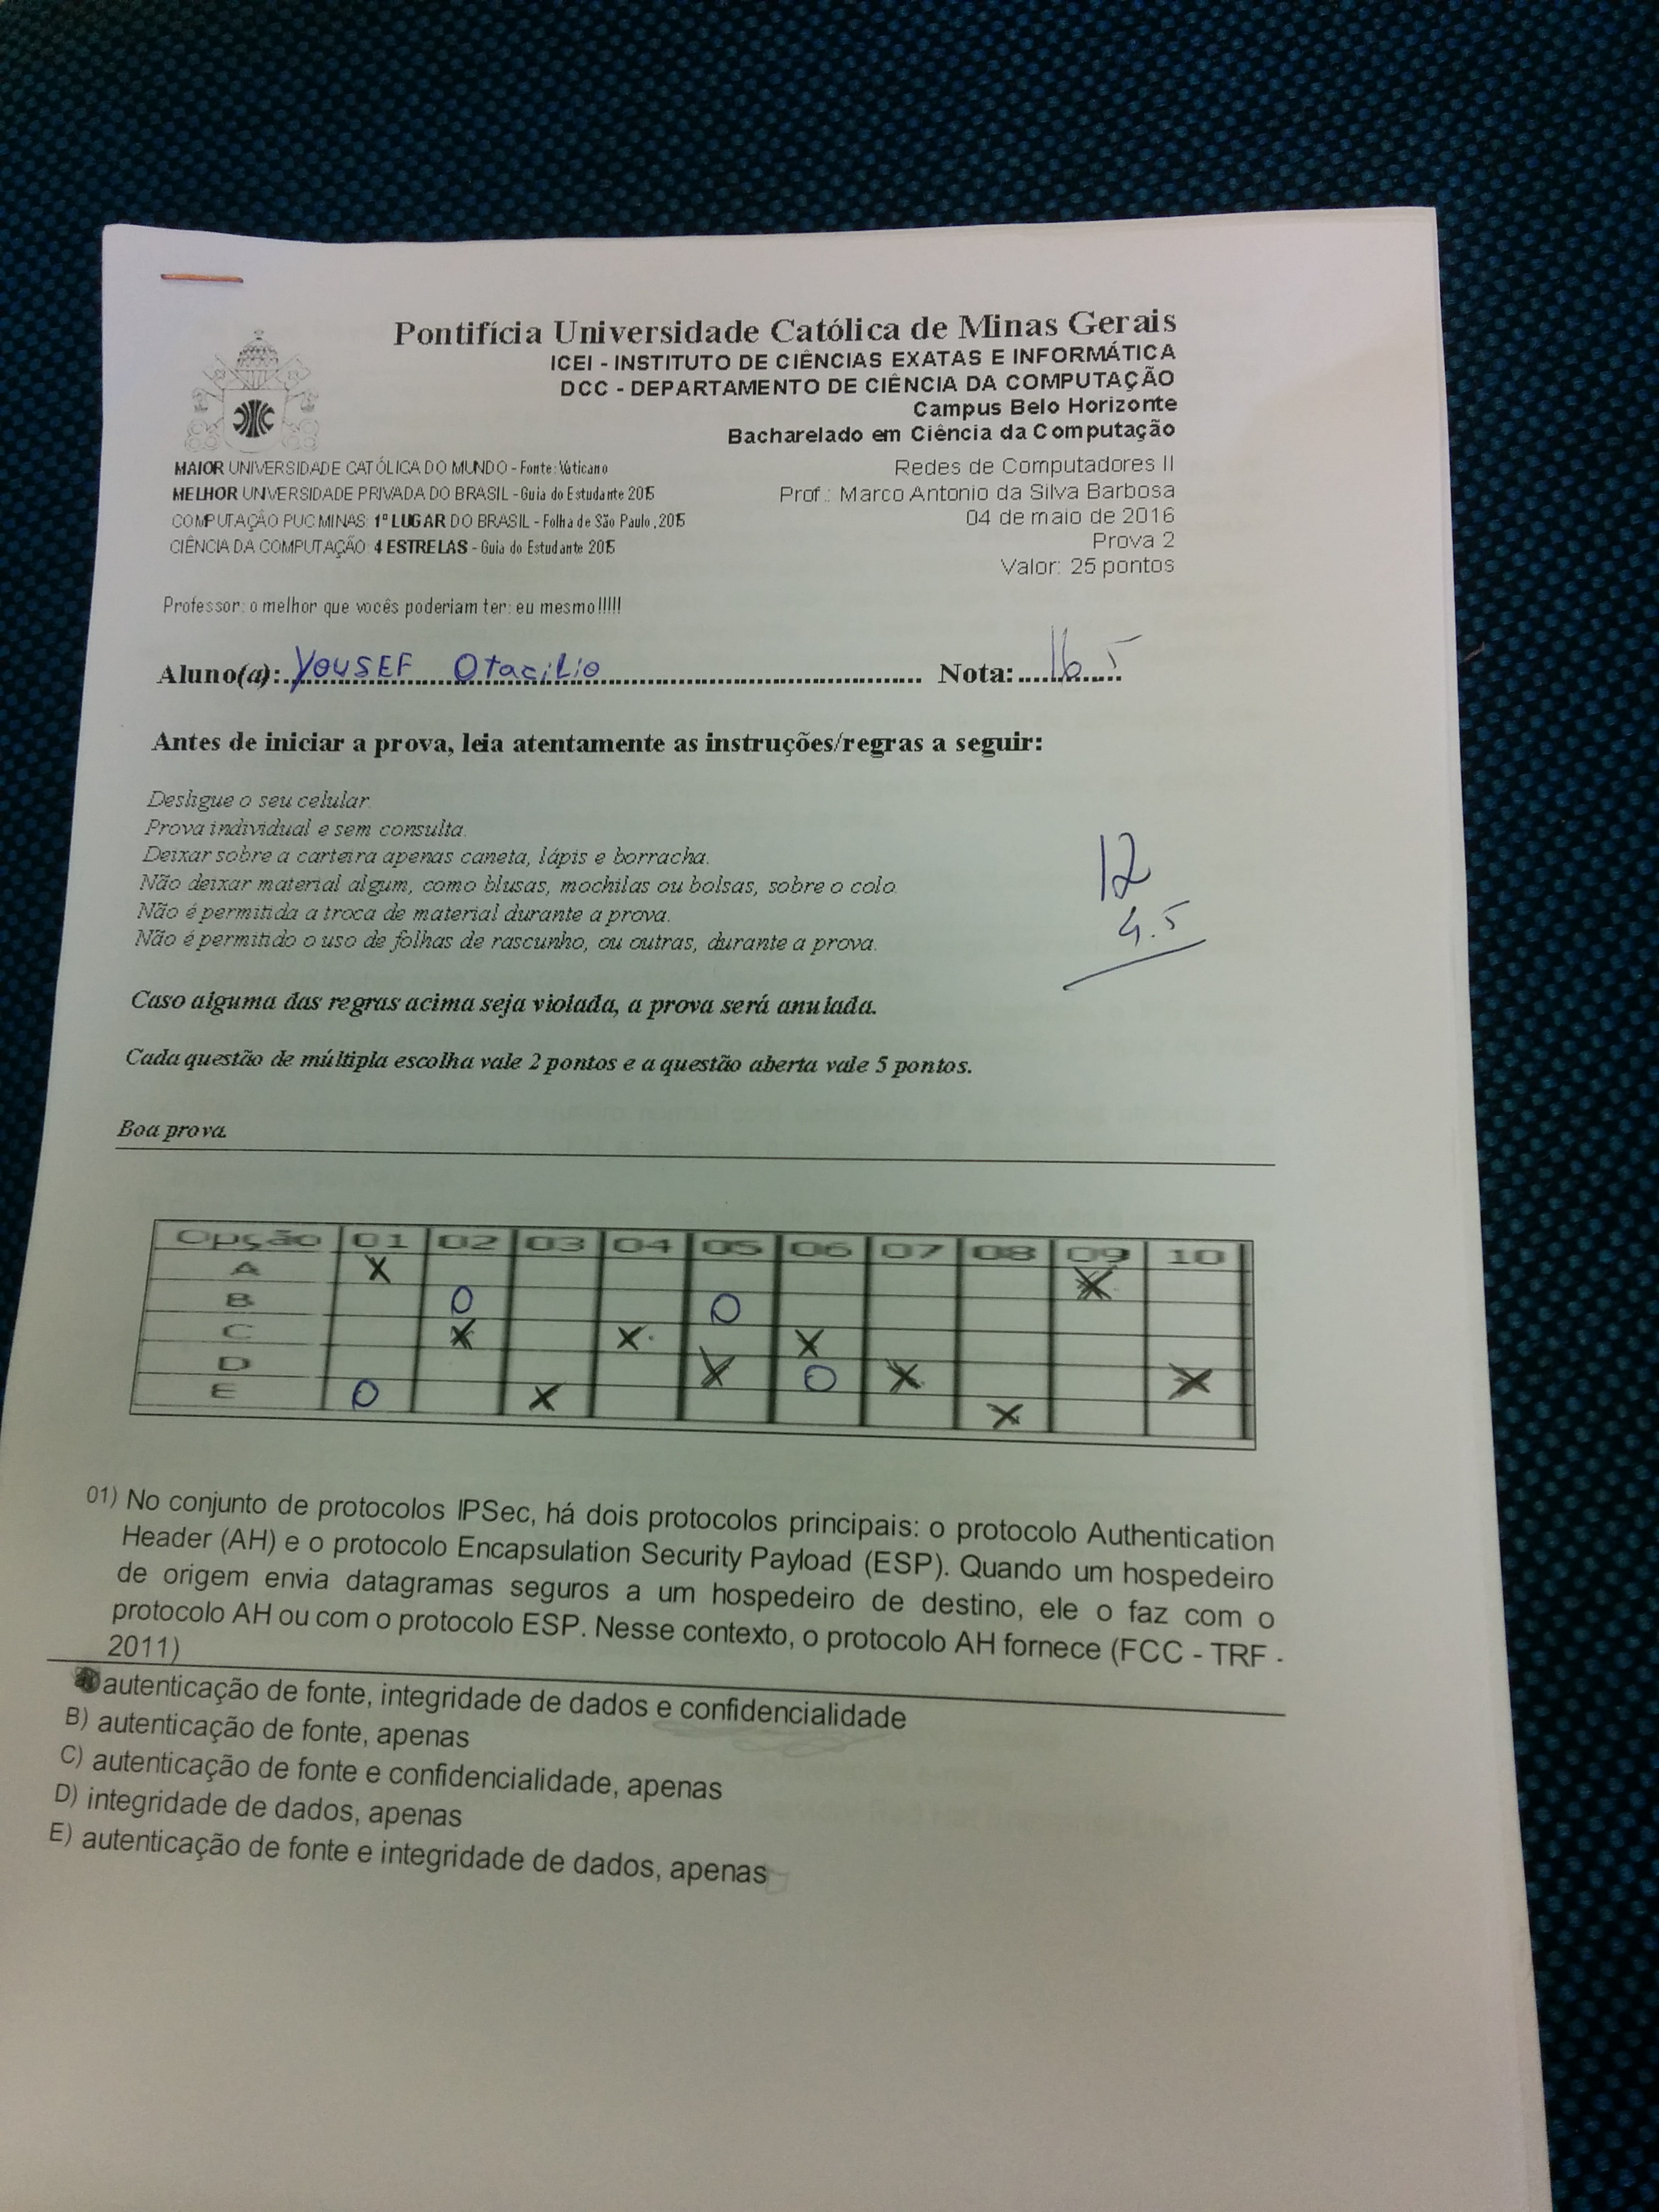 Pontifícia Universidade Católica de Minas Gerais
ICEI - INSTITUTO DE CIÊNCIAS EXATAS E INFORMÁTICA
DCC - DEPARTAMENTO DE CIÊNCIA DA COMPUTAÇÃO
Campus Belo Horizonte
Bacharelado em Ciência da Computação
MAIOR UNIVERSIDADE CATÓLICA DO MUNDO - Fonte: Vaticano
MELHOR UNIVERSIDADE PRIVADA DO BRASIL - Guia do Estudante 2015
COMPUTAÇÃO PUC MINAS: 1º LUGAR DO BRASIL - Folha de São Paulo, 2015
CIÊNCIA DA COMPUTAÇÃO: 4 ESTRELAS - Guia do Estudante 2015
Redes de Computadores II
Prof.: Marco Antonio da Silva Barbosa
04 de maio de 2016
Prova 2
Valor: 25 pontos
Professor: o melhor que vocês poderiam ter: eu mesmo!!!!!
Aluno(a): YOUSEF Otacilio Nota: 16.5
Antes de iniciar a prova, leia atentamente as instruções/regras a seguir:
Desligue o seu celular.
Prova individual e sem consulta.
Deixar sobre a carteira apenas caneta, lápis e borracha.
Não deixar material algum, como blusas, mochilas ou bolsas, sobre o colo.
Não é permitida a troca de material durante a prova.
Não é permitido o uso de folhas de rascunho, ou outras, durante a prova.
12
4.5
Caso alguma das regras acima seja violada, a prova será anulada.
Cada questão de múltipla escolha vale 2 pontos e a questão aberta vale 5 pontos.
Boa prova.
Opção 01 02 03 04 05 06 07 08 09 10
A X X
B O O
C X X X
D X O X X
E O X X
01) No conjunto de protocolos IPSec, há dois protocolos principais: o protocolo Authentication
Header (AH) e o protocolo Encapsulation Security Payload (ESP). Quando um hospedeiro
de origem envia datagramas seguros a um hospedeiro de destino, ele o faz com o
protocolo AH ou com o protocolo ESP. Nesse contexto, o protocolo AH fornece (FCC - TRF -
2011)
autenticação de fonte, integridade de dados e confidencialidade
B) autenticação de fonte, apenas
C) autenticação de fonte e confidencialidade, apenas
D) integridade de dados, apenas
E) autenticação de fonte e integridade de dados, apenas